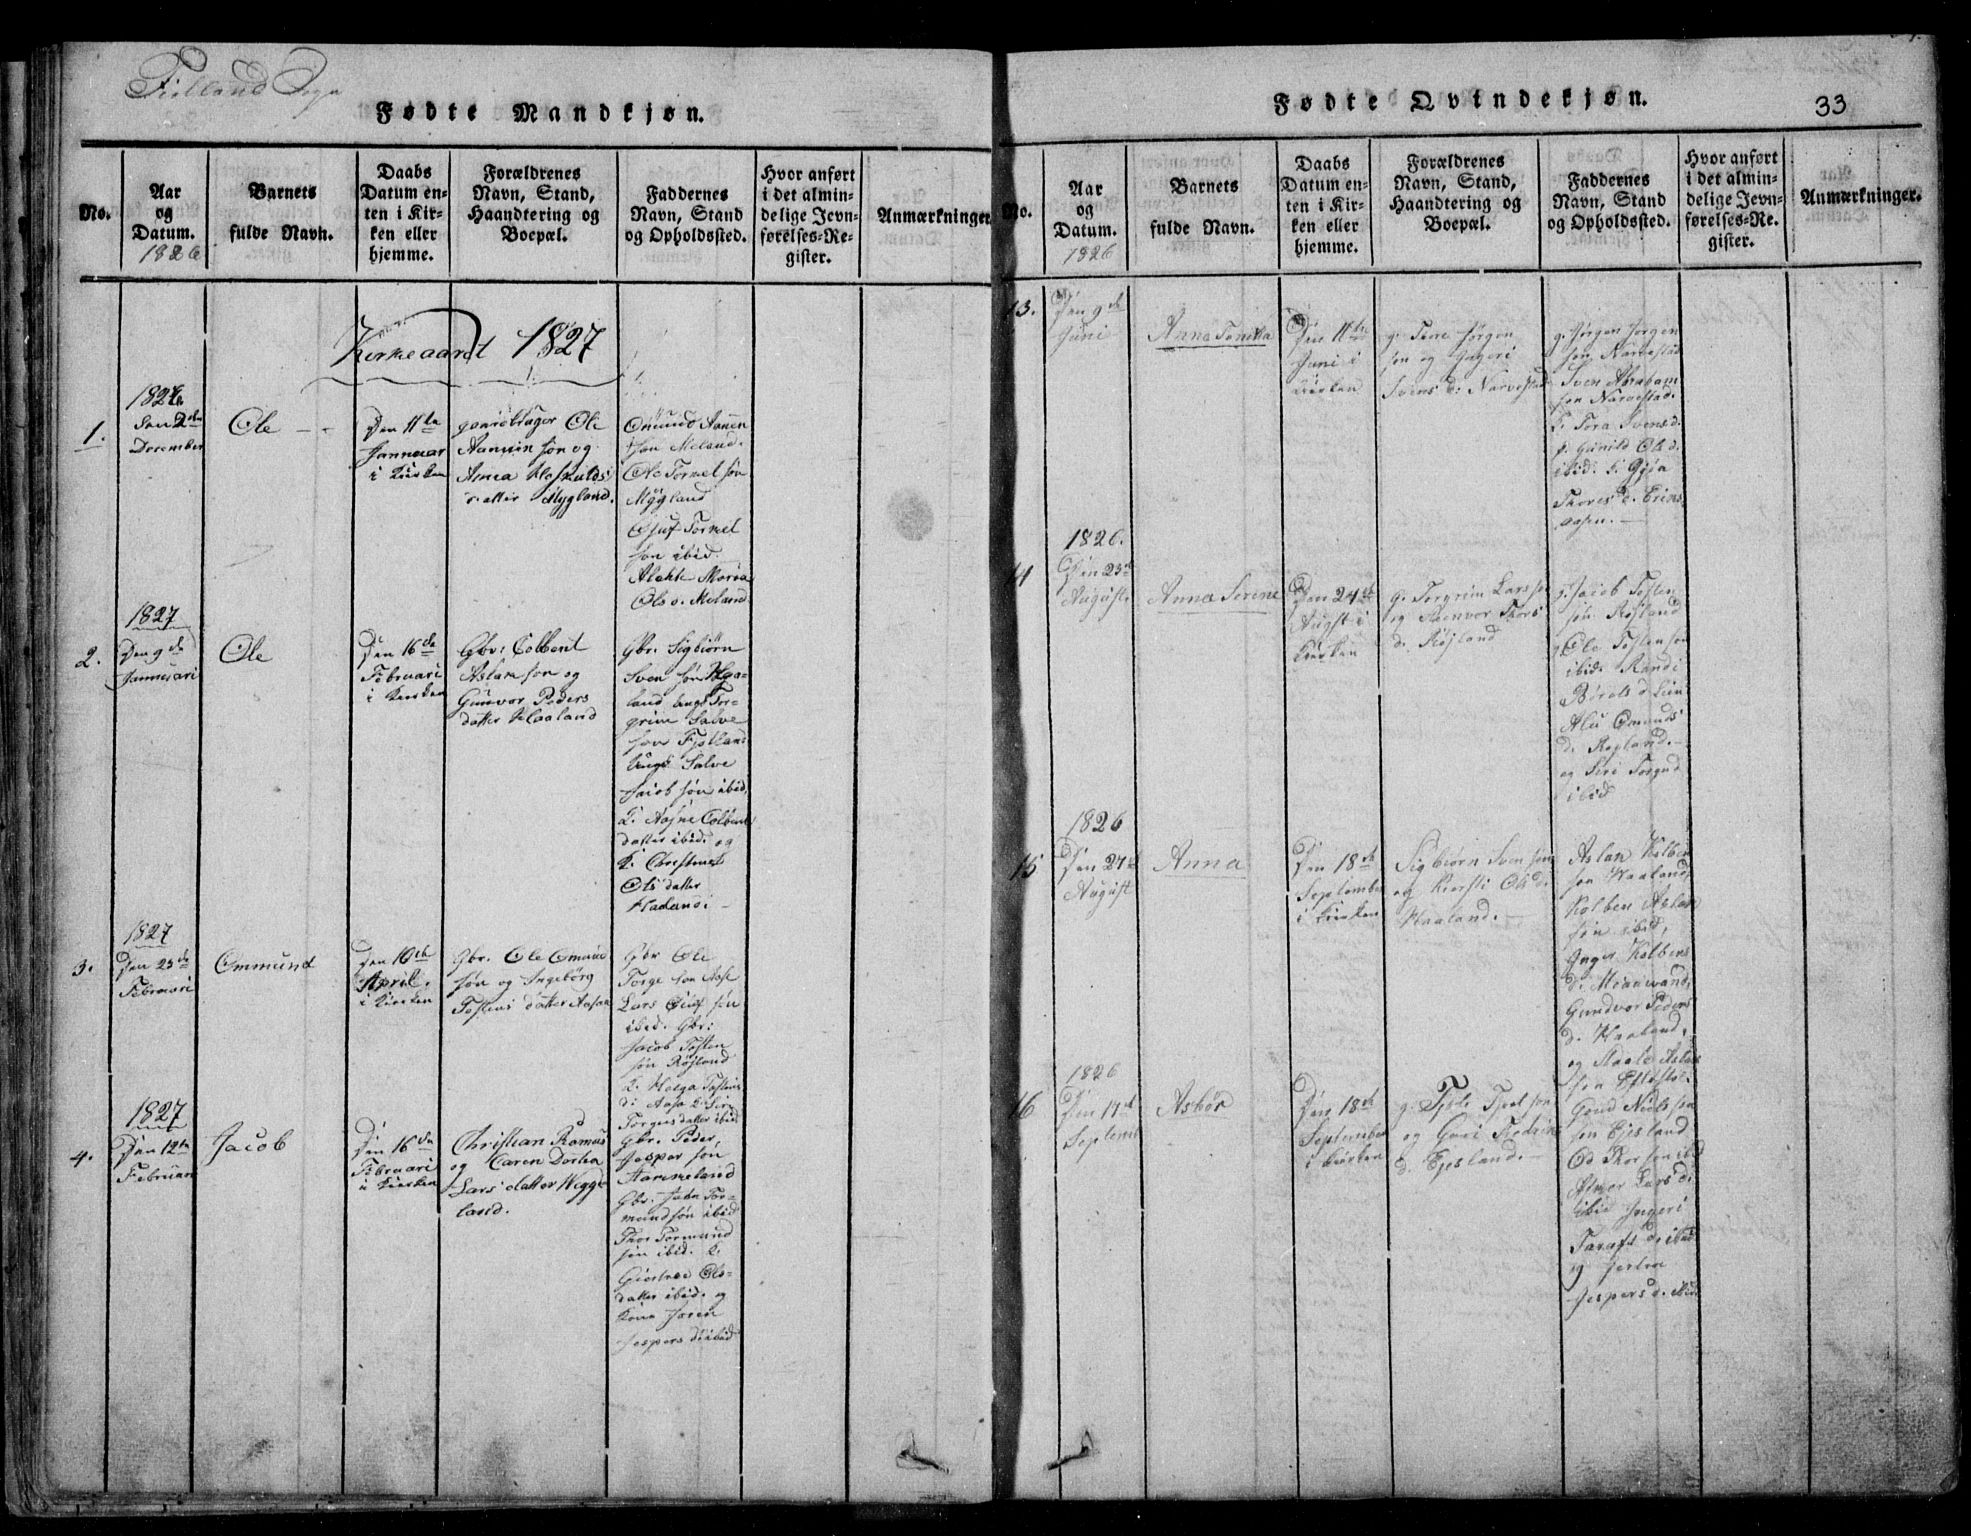 Fielland Sogn
Fødte Mandkjøn.
No.
Aar
og
Datum.
1826
Barnets
fulde Navn.
Daabs
Datum en-
ten i Kir-
ken eller
hjemme.
Forældrenes
Navn, Stand,
Haandtering og
Boepæl.
Faddernes
Navn, Stand
og Opholdssted.
Hvor anført
i det almin-
delige Jevn-
førelses-Re-
gister.
Anmærkninger
Kirkeaaret 1827
1.
1826
den 2de
December
Ole
Den 11te
Januar
i Kirken
gaardbruger Ole
Aanen søn og
Anna
datter Mygland.
Omund Aanen
søn Meland.
Ole Tormel søn
Mygland
Tormel
søn ibid.
Maria
Ols d. Meland
2.
1827
Den 9de
Januari
Ole
Den 16de
Februari
i Kirken
Gbr: Colbent
Aslak søn og
Gunvor Peders
datter Haaland
Gbr. Sigbiørn
Sven søn Haa-
land Tor-
grim Salve
søn
Ungk. Salve
Jacob søn ibid.
Colbens
datter ibid. og
K. Christense
Ols datter
3.
1827
Den 23de
Februari
Ommund
Den 10de
April
i Kirken
Gbr. Ole Omund
søn og Ingeborg
Tostens datter Aasen
Gbr Ole
Torge søn Aase
Lars søn
ibid. Gbr:
Jacob Tosten
søn Røjland
K. Helga Tostens
d: Aase K. Siri
Torgers datter ibid
4.
1827
Den 12te
Februari
Jacob
Den 16de
Februari
i Kirken
Christian Ramus
og Caren Dortea
Lars datter Wegge
land.
Gbr. Peder
Jesper søn
Hammeland
Gbr. John Tor-
mund søn ibid
Thor Tormund
søn ibid. K.
Ols-
datter ibid. og
Kone Joren
Jespers d ibid
Fødte Qvindekjøn.
33
No.
Aar
og
Datum.
1826
Barnets
fulde Navn.
Daabs
Datum en-
ten i Kir-
ken eller
hjemme.
Forældrenes
Navn, Stand,
Haandtering og
Boepæl.
Faddernes
Navn, Stand
og Opholdssted.
Hvor anført
i det almin-
delige Jevn-
førelses-Re-
gister.
Anmærkninger.
13.
Den 9de
Juni
Anna Tomilla
Den 11te
Juni i
Kirken
g. Tore Jørgen
søn og Ingeri
Svens d: Narvestad
g. Jørgen Jørgen
søn Narvestad
Sven Abraham
søn Narvestad.
K. Tora Svens d.
p. Gunild Ols d.
ibid. p. Gyja
Thores d. Erins
aasen.
14
1826.
Den 23de
August
Anna Serine
Den 24de
Augst i
Kirken
g. Torgrim Lars søn
og Rænvor Thors
d. Røjland
g. Jacob Tosten
søn Røjland
Ole Tosten søn
ibid. Randi
Børels d
Omunds
d. Røjland.
og Siri Torgud
ibid
15
1826
Den 27de
August
Anna
Den 18de
September
i Kirken
Sigbiørn Sven søn
og Kiersti Ols d.
Haaland.
Aslak Kolben
søn Haaland
Kolben Aslak
søn ibid,
Inger Kolbens
d.
Gundvor Peders
d. Haaland,
og Staale Aslak
søn
16
1826
Den 17de
Septemb
Asbør
Den 18de
September
i Kirken
g. Tjøls Tjøl søn
og Guri Fredrik
d. Ejesland.
Gond Niels søn
søn Ejesland
Od Thor søn ibid
Lars d.
ibid Ingeri
Tarald d. ibid
og
Jespers d. ibid